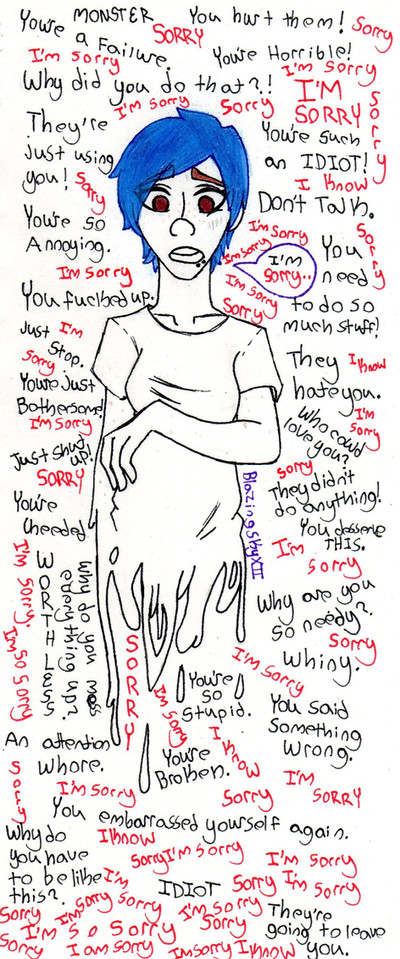 You're a MONSTER
a Failure.
SORRY
You hurt them!
Sorry
I'm sorry
You're Horrible!
I'm sorry
Why did you do that?!
I'm sorry
Sorry
I'M
SORRY
Sorry
They're
Just using
you!
Sorry
You're such
an IDIOT!
I know
Don't Talk.
You're so
Annoying.
I'm sorry
I'm sorry
I'm sorry
I'm
sorry..
I'm sorry
Sorry
You
need
to do so
much stuff!
Sorry
I'm sorry
You fuckbed up.
Just
Stop.
I'm
sorry
They
hate you.
I know
You're Just
Bothersome!
I'm sorry
who could
love you?
I'm
sorry
Just shut
up!
SORRY
sorry
They didn't
do anything!
BlazingskyXII
You're
cheeded
You desserve
THIS.
I'm
sorry
I'm sorry.
I'm so sorry
WORTHLESS
Why do you mess
everything up?
SORRY
Why are you
so needy?
Sorry
I'm sorry
Whiny.
You're
so
stupid.
I'm sorry
I know
You said
something
wrong.
An attention
whore.
You're
Broken.
I'm
SORRY
sorry
I'm sorry
Sorry
You embarrassed yourself again.
Why do
you have
to be like
this?
I know
Sorry
I'm sorry
I'm sorry
I'm
sorry
IDIOT
Sorry
I'm sorry
Sorry
I'm
Sorry
I'm sorry
They're
going to leave
you.
I'm so sorry
Sorry
Sorry
I am sorry
I'm sorry
I know